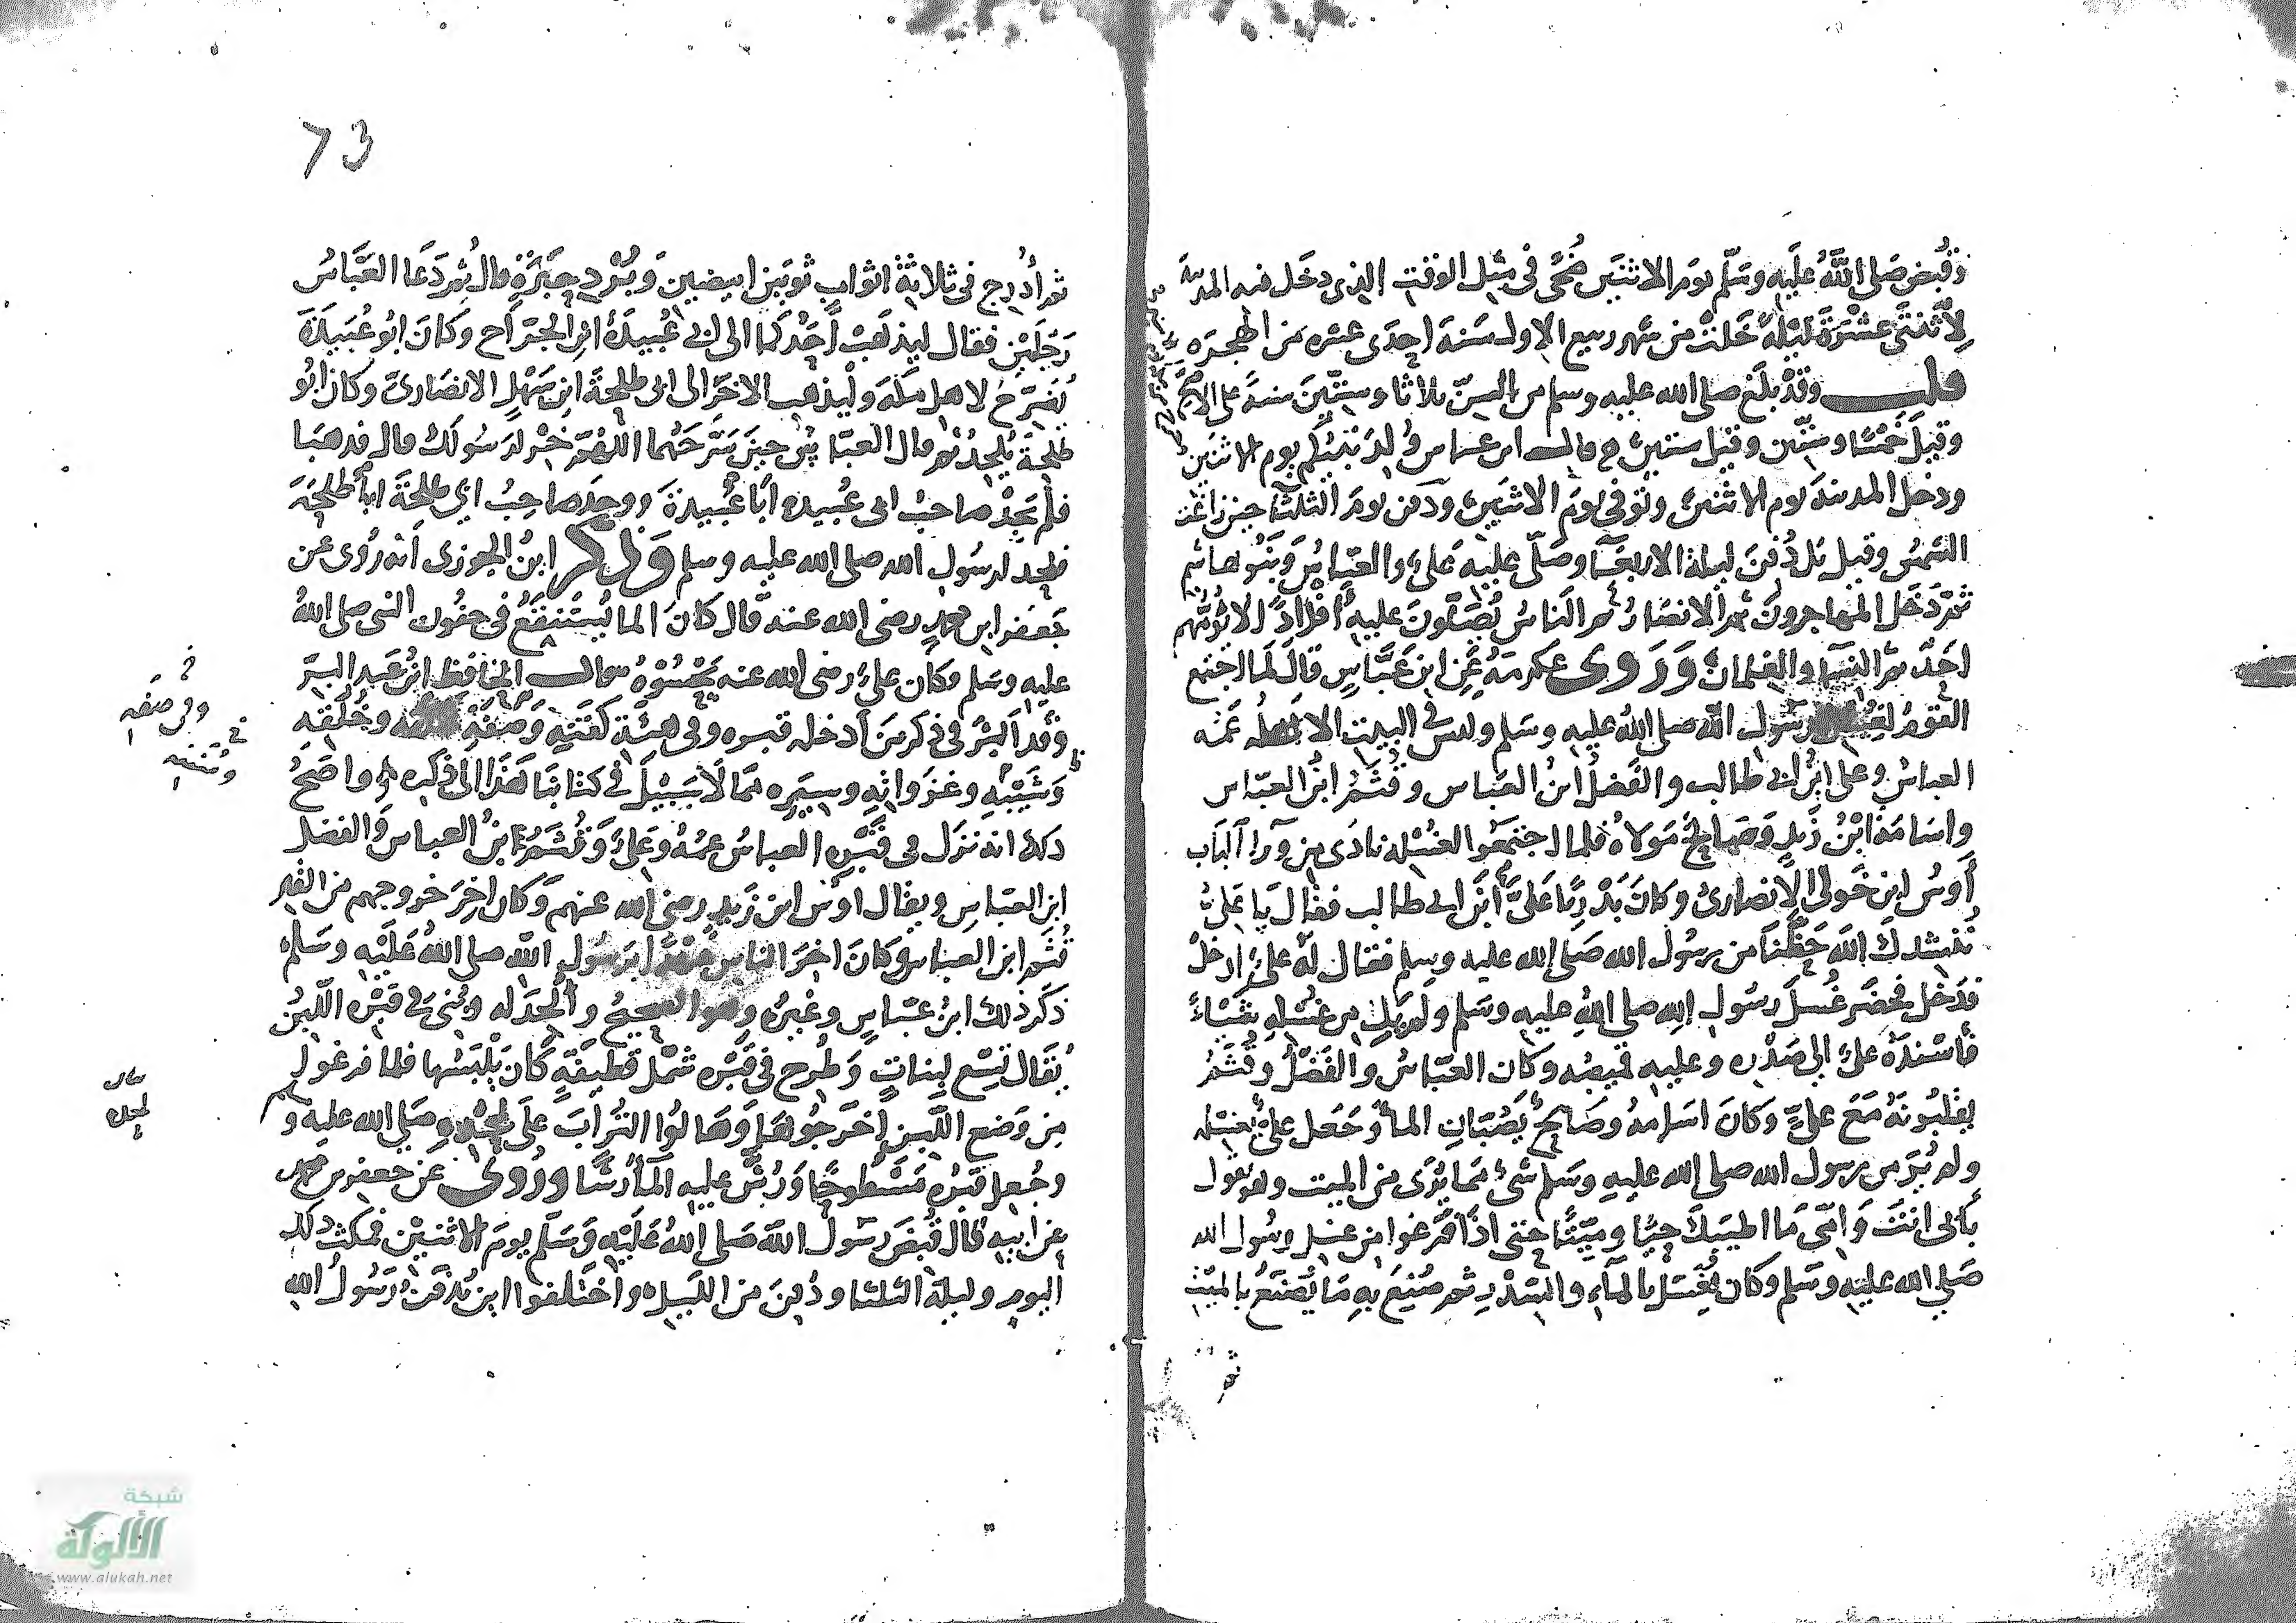 وقبض صلى الله عليه وسلم يوم الاثنين ضحى في مثل الوقت الذي دخل فيه المدينة
لاثنتي عشرة ليلة خلت من شهر ربيع الاول سنة احدى عشره من الهجره
قلت وقد بلغ صلى الله عليه وسلم من السن ثلاثا وستين سنة على الاصح
وقيل خمسا وستين وقيل ستين قال ابن عباس ولد نبيكم يوم الاثنين
ودخل المدينة يوم الاثنين وتوفي يوم الاثنين ودفن يوم الثلثا حين زاغت
الشمس وقيل بل دفن ليلة الاربعآ وصلى عليه علي والعباس وبنو هاشم
ثم دخل المهاجرون ثم الانصار ثم الناس يصلون عليه افذاذا لا يؤمهم
احد ثم النسآ والغلمان وروى عكرمة عن ابن عباس قال لما اجتمع
القوم لغسل رسول الله صلى الله عليه وسلم وليس في البيت الا اهله عمه
العباس وعلي ابن ابي طالب والفضل ابن العباس وقثم ابن العباس
واسامة ابن زيد وصالح مولاه فلما اجتمعوا لغسله نادى من ورآ الباب
أوس ابن خولي الانصاري وكان بدريا علي ابن ابي طالب فقال يا علي
ننشدك الله حظنا من رسول الله صلى الله عليه وسلم فقال له علي ادخل
فدخل فحضر غسل رسول الله صلى الله عليه وسلم ولم يل من غسله شيئا
فأسنده علي الى صدره وعليه قميصه وكان العباس والفضل وقثم
يقلبونه مع علي وكان اسامه وصالح يصبان الما وجعل علي يغسله
ولم ير من رسول الله صلى الله عليه وسلم شئ مما يرى من الميت وهو يقول
بأبي انت وامي ما اطيبك حيا وميتا حتى اذا فرغوا من غسل رسول الله
صلى الله عليه وسلم وكان يغسل بالمآء والسدر ثم صنع به ما يصنع بالميت
ثم
73
ثم أدرج في ثلاثة اثواب ثوبين ابيضين وبرد حبرة قال ثم دعا العباس
رجلين فقال ليذهب أحدكما الى ابي عبيدة ابن الجراح وكان ابو عبيدة
يضرح لاهل مكة وليذهب الاخر الى ابي طلحة ابن سهل الانصاري وكان ابو
طلحة يلحد ثم قال العباس حين سرحهما اللهم خر لرسولك قال فذهبا
فلم يجد صاحب ابي عبيده أبا عبيدة ووجد صاحب ابي طلحة ابا طلحة
فلحد لرسول الله صلى الله عليه وسلم وذكر ابن الجوزي انه روي عن
جعفر ابن محمد رضي الله عنه قال كان الما يستنقع في جفون النبي صلى الله
عليه وسلم وكان علي رضي الله عنه يحسوه قال الحافظ ابن عبد البر
وقد اكثر في ذكر من أدخله قبره وفي هيئة كفنه وصفة وخلقه
وشيبه وغزواته وسيره مما لا سبيل في كتابنا هذا الى ذكره واصح
ذلك انه نزل في قبره العباس عمه وعلي وقثم ابن العباس والفضل
ابن العباس ويقال اوس ابن زيد رضي الله عنهم وكان اخر خروجهم من القبر
قثم ابن العباس وكان اخر الناس عهدا برسول الله صلى الله عليه وسلم
ذكر ذلك ابن عباس وغيره وهو الصحيح وألحد له وبني في قبره اللبن
يقال تسع لبنات وطرح في قبره شمل قطيفة كان يلبسها فلما فرغوا
من وضع اللبن اخرجوها وهالوا التراب على لحده صلى الله عليه وسلم
وجعل قبره مسطوحا ورش عليه المآ رشا وروى عن جعفر بن محمد
عن ابيه قال قبض رسول الله صلى الله عليه وسلم يوم الاثنين فمكث ذلك
اليوم وليلة الثلثا ودفن من الليل واختلفوا اين يدفن رسول الله
وفي صفته
شبكة
الألوكة
www.alukah.net